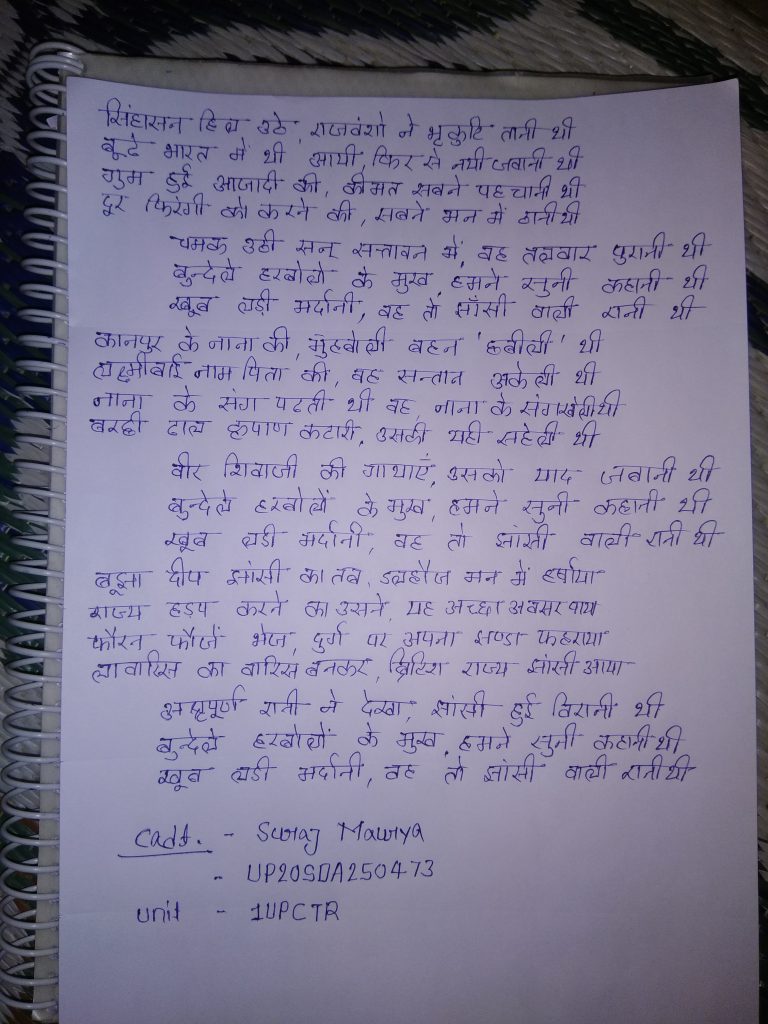 सिंहासन हिल उठे, राजवंशो ने भृकुटि तानी थी
बुढे भारत में थी आयी, फिर से नयी जवानी थी
गुम हुई आजादी की, कीमत सबने पहचानी थी
दूर फिरंगी को करने की, सबने मन में ठानी थी
चमक उठी सन् सत्तावन में, वह तलवार पुरानी थी
बुन्देले हरबोलो के मुख, हमने सुनी कहानी थी
खूब लडी मर्दानी, वह तो झाँसी वाली रानी थी
कानपुर के नाना की, मुंहबोली बहन 'छबीली' थी
लक्ष्मीबाई नाम पिता की, वह सन्तान अकेली थी
नाना के संग पढती थी वह, नाना के संग खेली थी
बरछी ढाल कृपाण कटारी, उसकी यही सहेली थी
वीर शिवाजी की गाथाएँ, उसको याद जवानी थी
बुन्देले हरबोलों के मुख, हमने सुनी कहानी थी
खूब लडी मर्दानी, वह तो झांसी वाली रानी थी
बुझा दीप झांसी का तब, डलहौज मन में हर्षाया
राज्य हडप करने का उसने, यह अच्छा अवसर पाया
फौरन फौजें भेज, दुर्ग पर अपना झण्डा फहराया
लावारिस का वारिस बनकर, ब्रिटिश राज्य झांसी आया
अश्रुपूर्ण रानी ने देखा, झांसी हुई विरानी थी
बुन्देले हरबोलों के मुख, हमने सुनी कहानी थी
खूब लडी मर्दानी, वह तो झांसी वाली रानी थी
Cadt. - Suraj Maurya
- UP20SDA250473
Unit - 1UPCTR